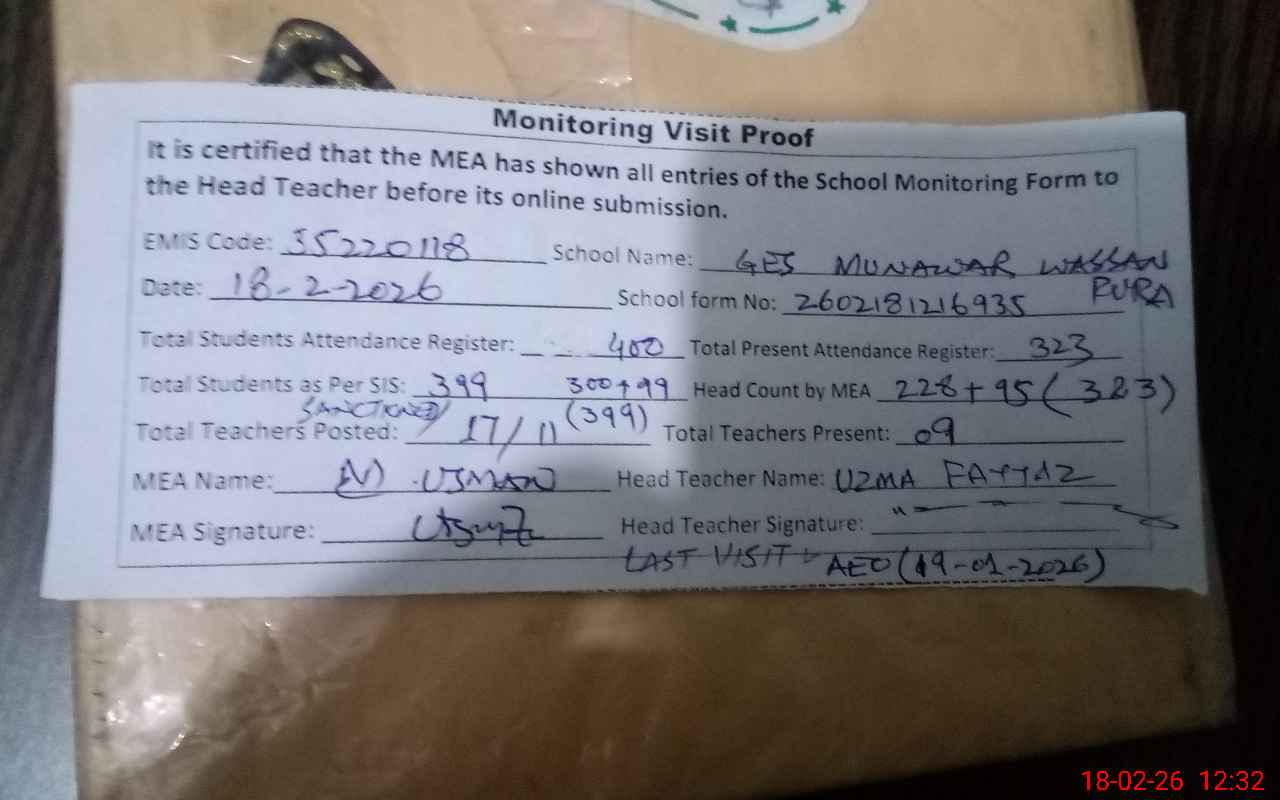 Monitoring Visit Proof
It is certified that the MEA has shown all entries of the School Monitoring Form to
the Head Teacher before its online submission.
EMIS Code: 35220118 School Name: GES MUNAWAR WASSAN
PURA
Date: 18-2-2026 School form No: 2602181216935
Total Students Attendance Register: 400 Total Present Attendance Register: 323
Total Students as Per SIS: 399 300+99 Head Count by MEA 228+95 (323)
SANCTIONED/ (399)
Total Teachers Posted: 17/11 Total Teachers Present: 09
MEA Name: M. USMAN Head Teacher Name: UZMA FAYYAZ
MEA Signature: Head Teacher Signature:
LAST VISIT AEO (19-01-2026)
18-02-26 12:32